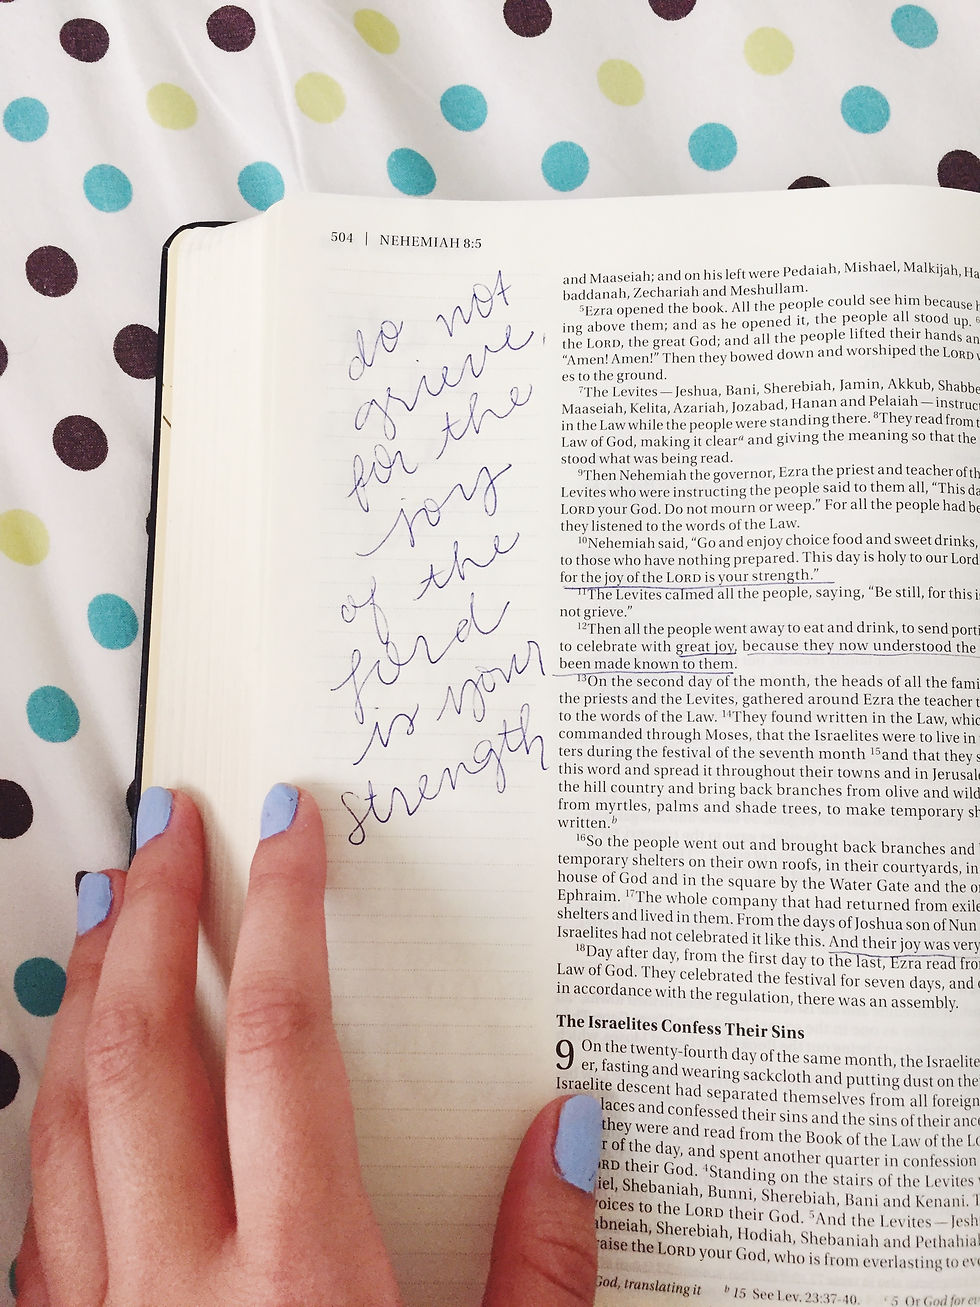 504 | NEHEMIAH 8:5
do not
grieve,
for the
joy
of the
Lord
is your
strength
and Maaseiah; and on his left were Pedaiah, Mishael, Malkijah, Ha
baddanah, Zechariah and Meshullam.
5Ezra opened the book. All the people could see him because
ing above them; and as he opened it, the people all stood up. 6
the LORD, the great God; and all the people lifted their hands an
“Amen! Amen!” Then they bowed down and worshiped the LORD
es to the ground.
7The Levites—Jeshua, Bani, Sherebiah, Jamin, Akkub, Shabbe
Maaseiah, Kelita, Azariah, Jozabad, Hanan and Pelaiah—instruc
in the Law while the people were standing there. 8They read from t
Law of God, making it clear a and giving the meaning so that the
stood what was being read.
9Then Nehemiah the governor, Ezra the priest and teacher of th
Levites who were instructing the people said to them all, “This da
LORD your God. Do not mourn or weep.” For all the people had be
they listened to the words of the Law.
10Nehemiah said, “Go and enjoy choice food and sweet drinks,
to those who have nothing prepared. This day is holy to our Lord
for the joy of the LORD is your strength.”
11The Levites calmed all the people, saying, “Be still, for this i
not grieve.”
12Then all the people went away to eat and drink, to send porti
to celebrate with great joy, because they now understood the
been made known to them.
13On the second day of the month, the heads of all the fami
the priests and the Levites, gathered around Ezra the teacher t
to the words of the Law. 14They found written in the Law, whic
commanded through Moses, that the Israelites were to live in
ters during the festival of the seventh month 15and that they s
this word and spread it throughout their towns and in Jerusale
the hill country and bring back branches from olive and wild
from myrtles, palms and shade trees, to make temporary sh
written.b
16So the people went out and brought back branches and
temporary shelters on their own roofs, in their courtyards, in
house of God and in the square by the Water Gate and the o
Ephraim. 17The whole company that had returned from exile
shelters and lived in them. From the days of Joshua son of Nun
Israelites had not celebrated it like this. And their joy was very
18Day after day, from the first day to the last, Ezra read fro
Law of God. They celebrated the festival for seven days, and
in accordance with the regulation, there was an assembly.
The Israelites Confess Their Sins
9 On the twenty-fourth day of the same month, the Israelite
er, fasting and wearing sackcloth and putting dust on the
Israelite descent had separated themselves from all foreign
laces and confessed their sins and the sins of their ance
they were and read from the Book of the Law of the LO
r of the day, and spent another quarter in confession
RD their God. 4Standing on the stairs of the Levites
iel, Shebaniah, Bunni, Sherebiah, Bani and Kenani. T
oices to the LORD their God. 5And the Levites—Jesh
abneiah, Sherebiah, Hodiah, Shebaniah and Pethahiah
raise the LORD your God, who is from everlasting to eve
God, translating it b 15 See Lev. 23:37-40. c 5 Or God for e